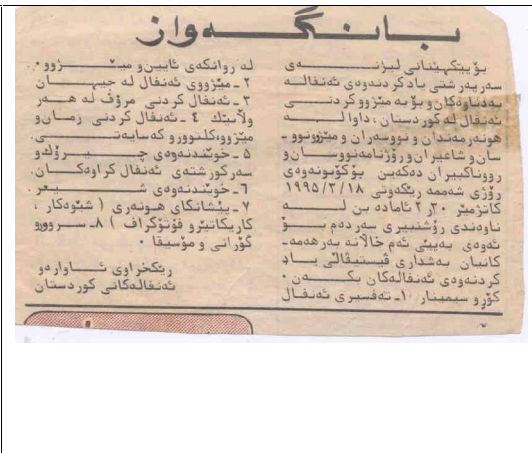 بـــانگـــەواز
بۆ پێکهێنانی لیژنــــەی
سەرپەرشتی یادکردنەوەی ئەنفالــە
بەدناوەکان و بۆ بە مێژووکردنــی
ئەنفال لە کوردستان ، داوا لــە
هونەرمەندان و نووسەران و مێژوونوو ـ
سان و شاعیران و رۆژنامەنووســان و
رووناکبیران دەکەین بۆ کۆبونەوەی
رۆژی شەممە رێکەوتی ١٩٩٥/٣/١٨
کاتژمێر ٢٫٣٠ ئامادە بن لــــە
ناوەندی رۆشنبیری سەردەم بــــۆ
ئەوەی بەپێی ئەم خاڵانە بەرهەمەـ
کانیان بەشداری ڤیستیڤاڵی یــاد
کردنەوەی ئەنفالەکان بکــەن ٠
کۆڕو سیمینار ١ـ تەفسیری ئەنفال
لە روانگەی ئایین و مێــژوو ٠
٢ـ مێژووی ئەنفال لە جیهــان
٣ـ ئەنفال کردنی مرۆڤ لە هــەر
وڵاتێك ٤ ـ ئەنفال کردنی زمان و
مێژوو، کلتوورو کەسایەتــی
٥ـ خوێندنەوەی چــیـرۆك و
سەرگوزشتەی ئەنفال کراوەکان.
٦ـ خوێندنەوەی شــیعر.
٧ـ پێشانگای هونەری ( شێوەکار ،
کاریکاتێرو فۆتۆگراف ) ٨ـ ســروورو
گۆرانی و مۆسیقا ٠
رێکخراوی ئـــاوارەو
ئەنفالەکانی کوردستان